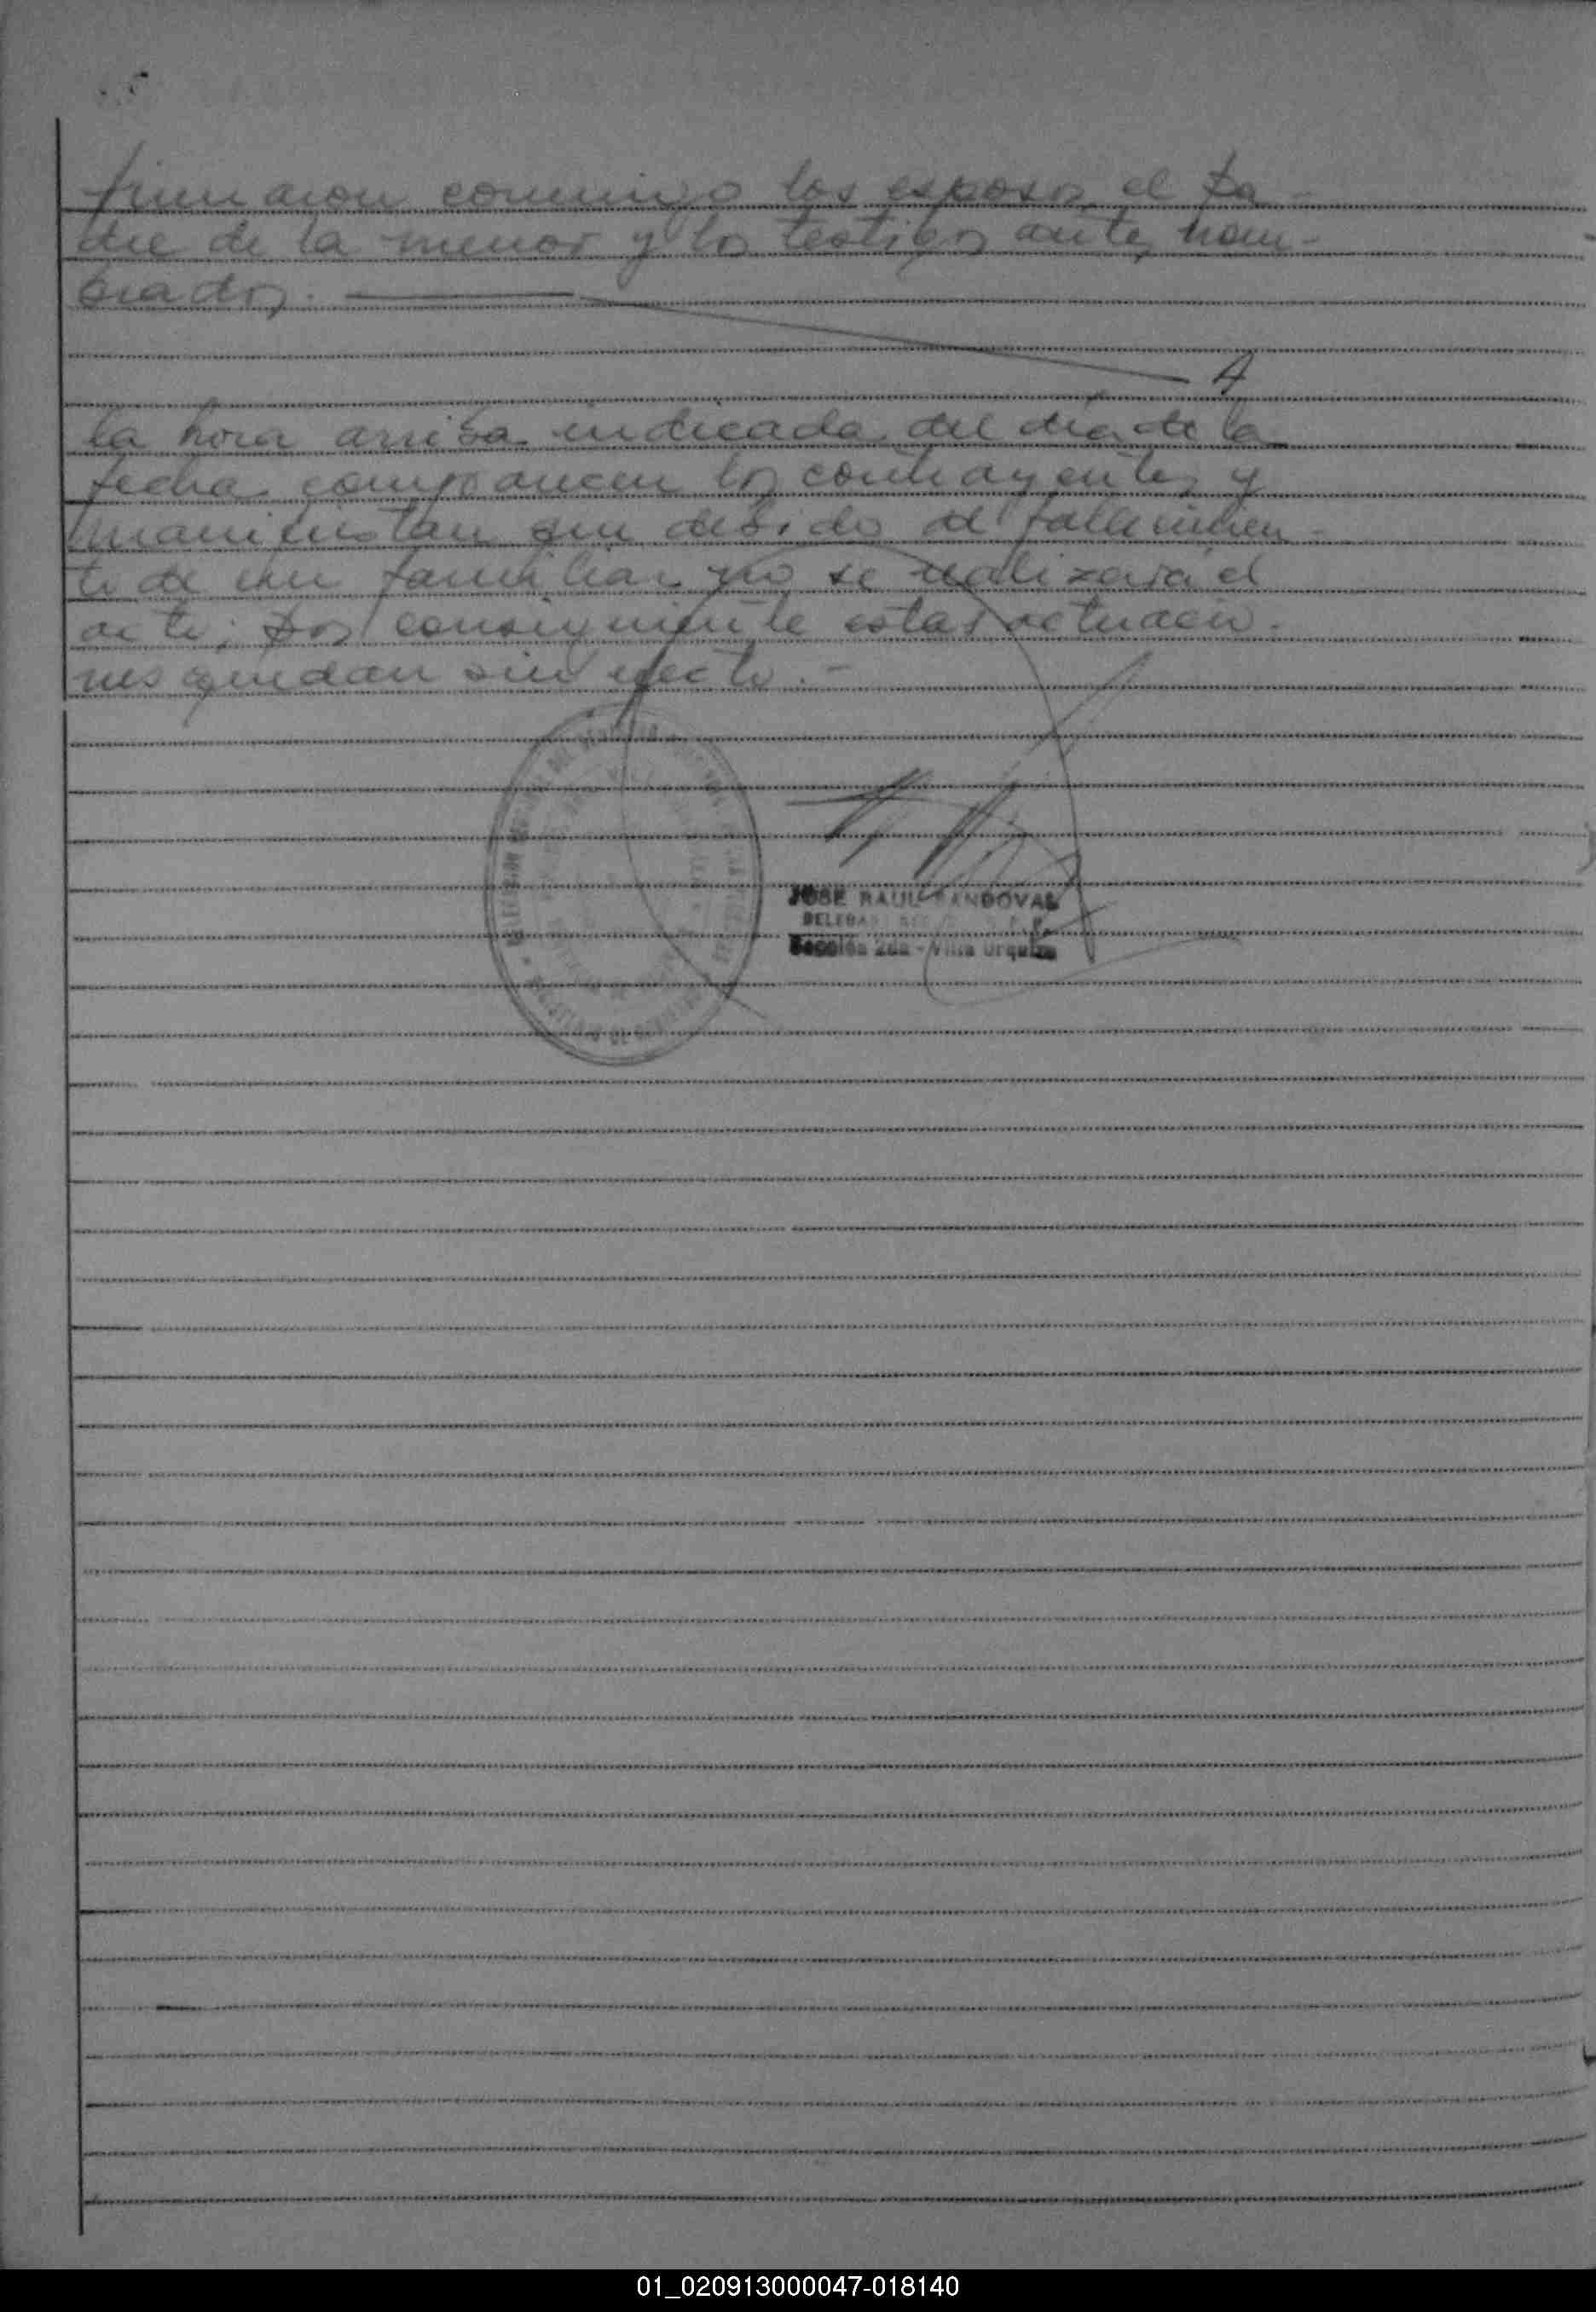 firmaron conmigo los esposos, el pa-
dre de la menor y los testigos antes nom-
brados. — A
la hora arriba indicada del día de la
fecha comparecen los contrayentes y
manifiestan que debido al fallecimien-
to de un familiar no se realizará el
acto; por consiguiente estas actuacio-
nes quedan sin efecto. -
JOSE RAUL SANDOVAL
Sección 2da - Villa Urquiza
01_020913000047-018140